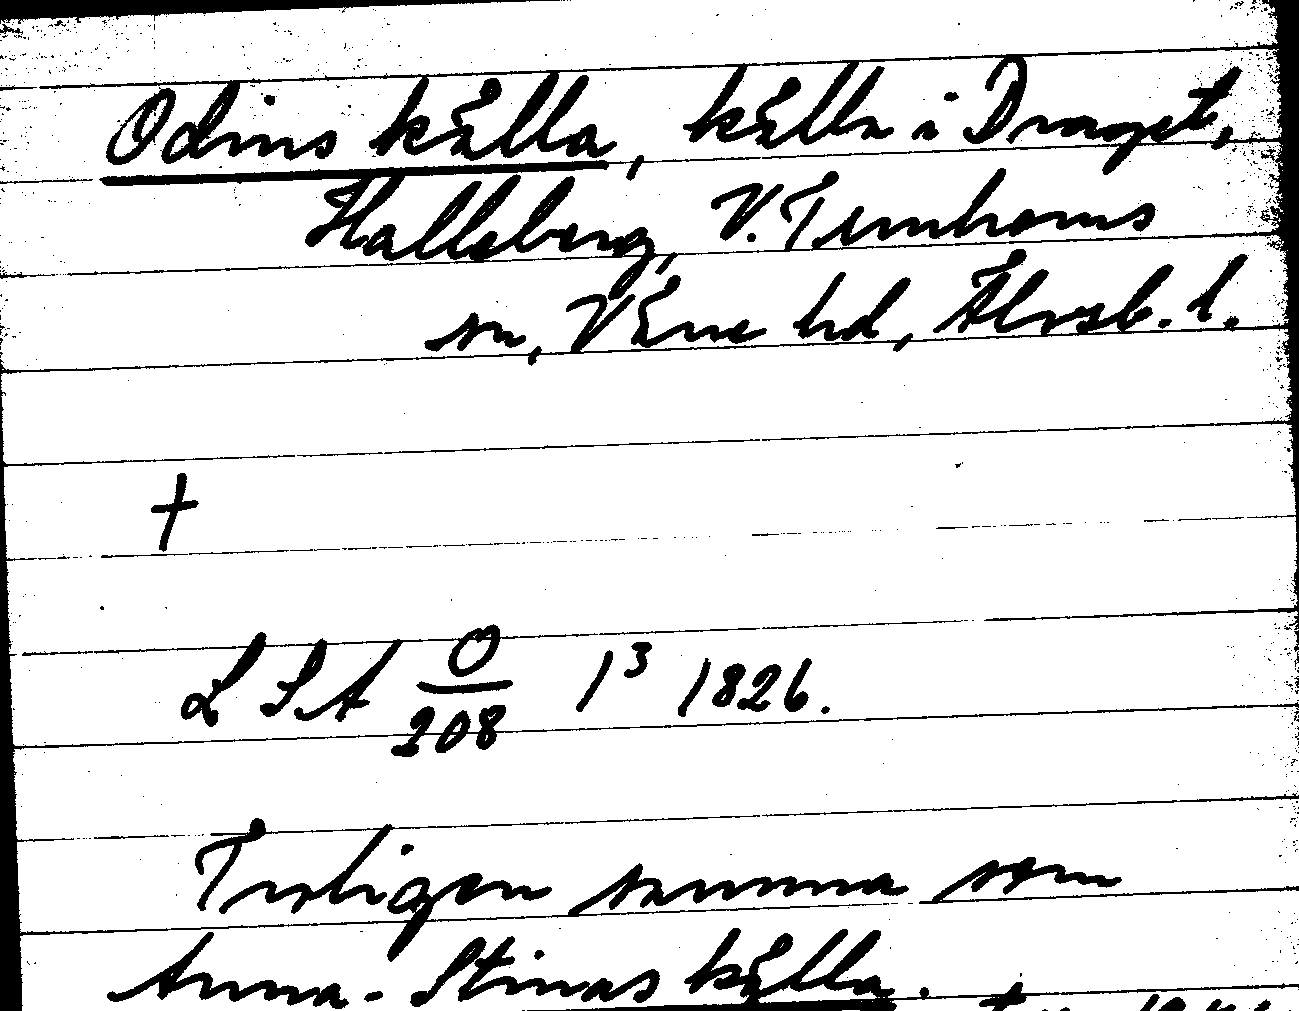 Odins källa, källa i Draget,
Halleberg, V. Tunhems
sn, Väne hd, Älvsb. l.
†
LSA O/208 1³ 1826.
Troligen samma som
Anna-Stinas källa.